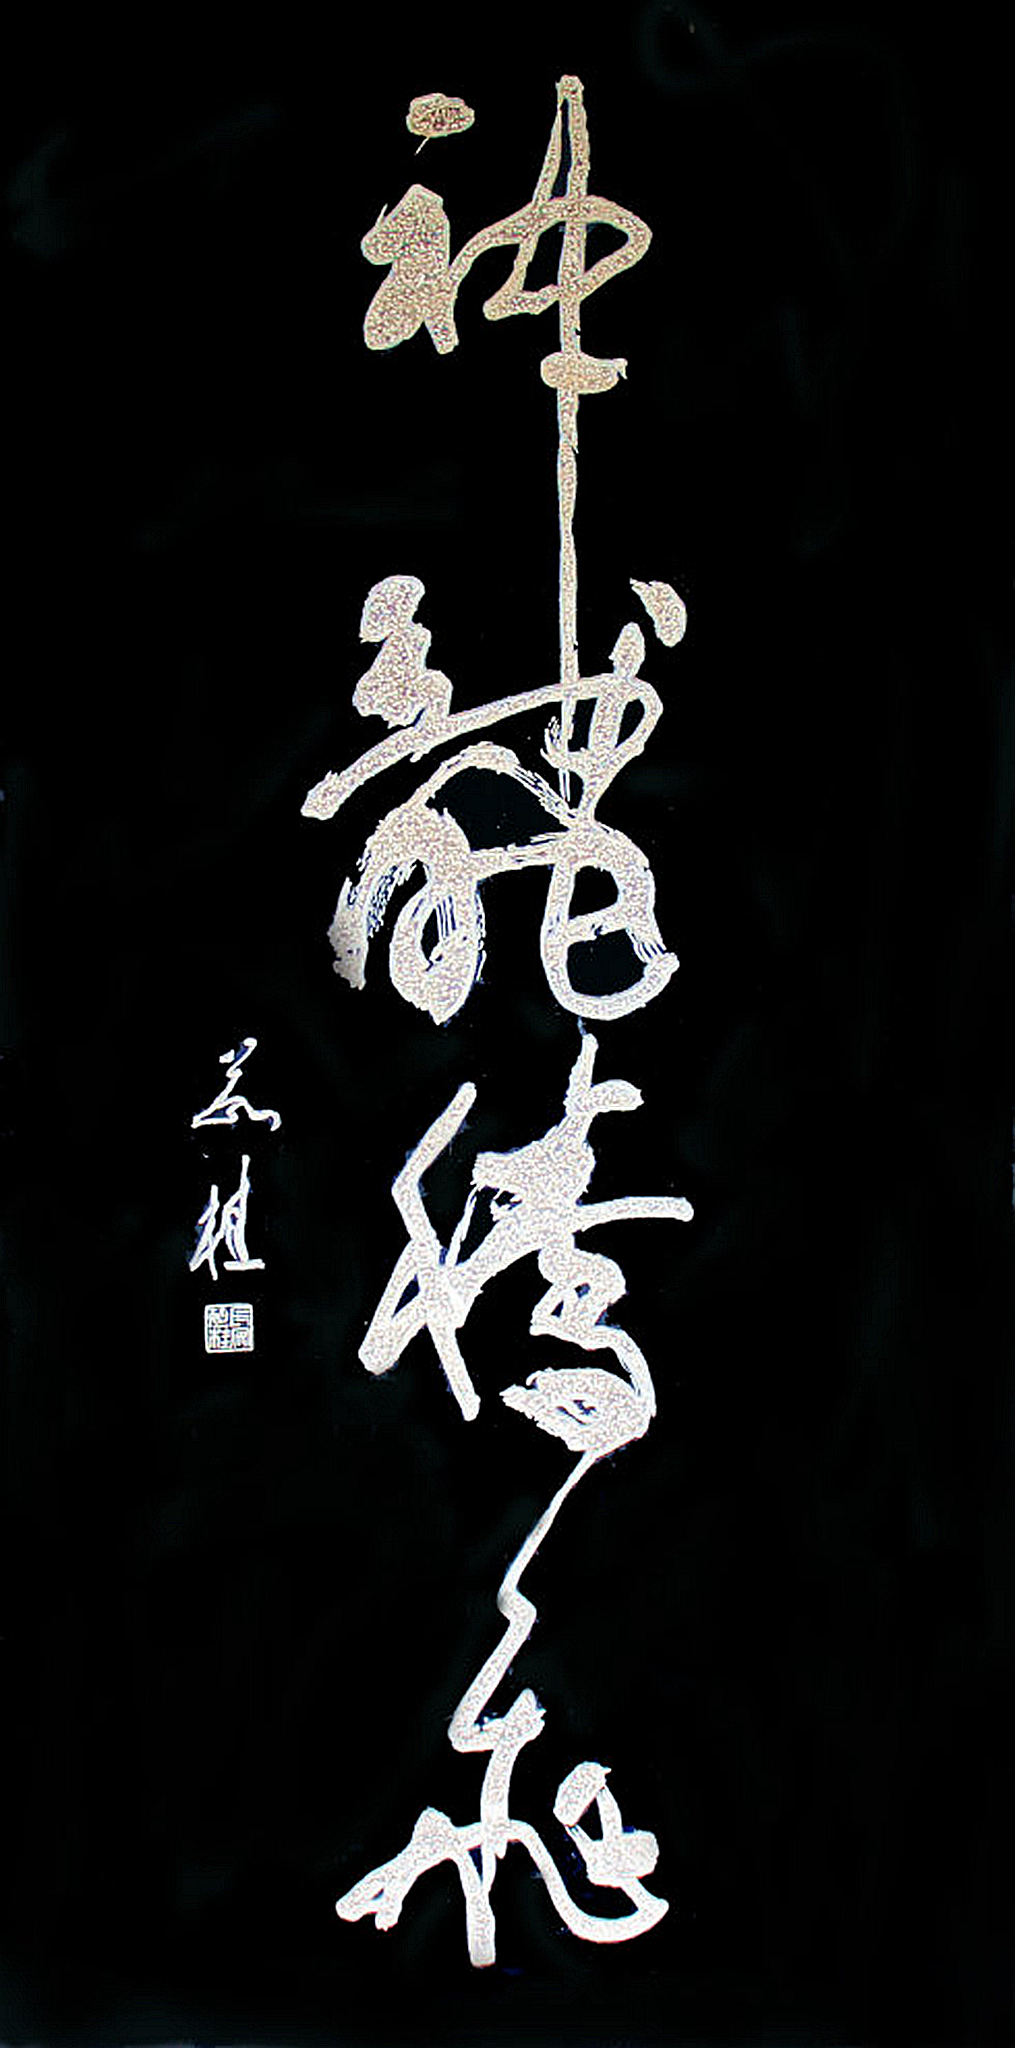 神龍騰飛